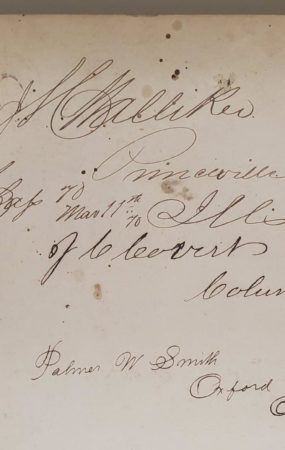 J. S. C. Halliker
Princeville
Mar 11th 70 Ills
J C Covert
Colum
Palmer W Smith
Oxford